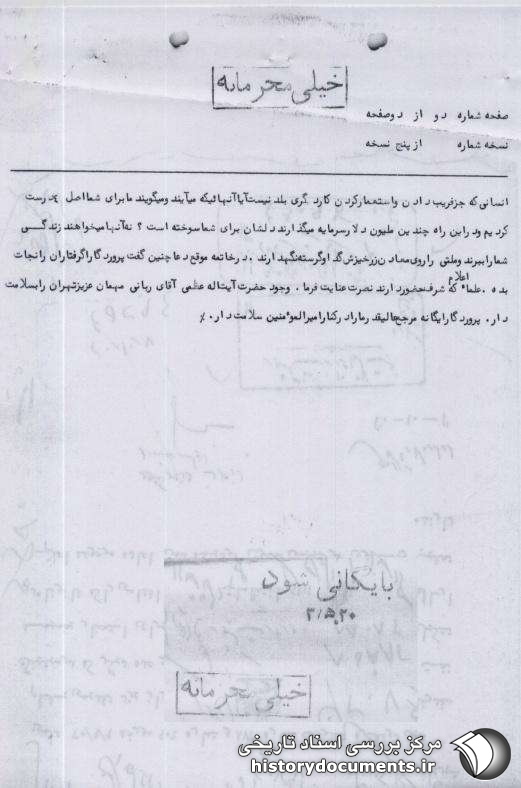 خیلی محرمانه
صفحه شماره دو از دوصفحه
نسخه شماره از پنج نسخه
انسانی که جزفریب دادن واستعمارکردن کارد گری بلد نیست آیا آنهائیکه میآیند ومیگویند مابرای شما اصل درست
کردیم ودراین راه چندین ملیون دلارسرمایه میگذارند دلشان برای شما سوخته است ؟ نه آنها میخواهند زندگی
شمارا ببرند وملتی را روی معادن زرخیزش گدا وگرسنه نگهدارند . درخاتمه موقع دعا چنین گفت پروردگارا گرفتاران را نجات
اعلام
بده . علماء که شرف حضوردارند نصرت عنایت فرما . وجود حضرت آیت اله عظمی آقای ربانی مهمان عزیز شهرمان را بسلامت
دار . پروردگارا یگانه مرجع عالیقدر مارا در کنار امیرالموءمنین سلامت دار . ٪
بایگانی شود
خیلی محرمانه
مرکز بررسی اسناد تاریخی
historydocuments.ir